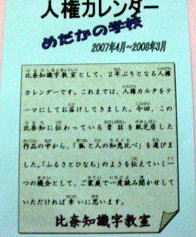 人権カレンダー
めだかの学校
2007年4月~2008年3月
比奈知識字教室として、2年ぶりとなる人権
カレンダーです。これまでは、人権カルタをテ
ーマにしてお届けしてきました。今回、この
比奈知に伝わっている昔話を紙芝居した
作品の中から、「狐と人の知恵比べ」を選びま
した。「ふるさとひなち」のよさを伝えていく一
つの機会として、ご家庭で一度読み聞かせて
いただければ幸いに思います。
比奈知識字教室